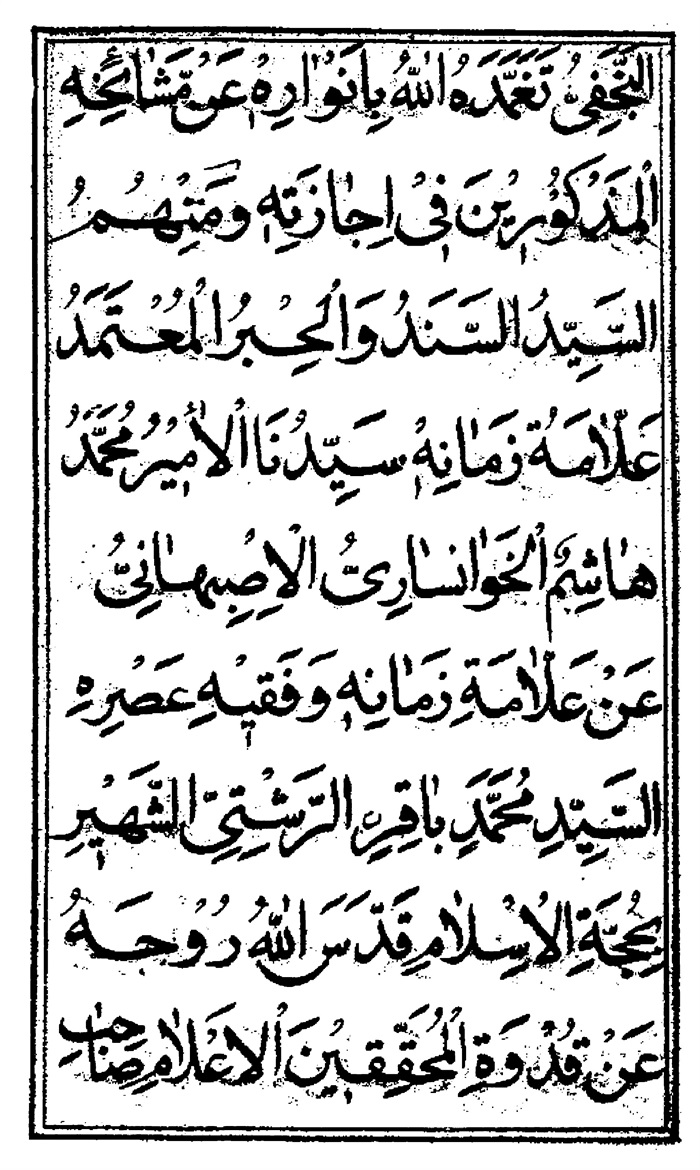 النَّجَفِىُّ تَغَمَّدَهُ اللهُ بِاَنْوٰارِهِ عَنْ مَشٰائِخِهِ
الْمَذْكُورِينَ فِى اِجٰازَتِهِ وَمِنْهُمُ
السَّيِّدُ السَّنَدُ وَالْحِبْرُ الْمُعْتَمَدُ
عَلّٰامَةُ زَمٰانِهِ سَيِّدُنَا الْاَمِيرُ مُحَمَّدُ
هٰاشِمُ الْخَوٰانسٰارِىُّ الْاِصْبَهٰانِىُّ
عَنْ عَلّٰامَةِ زَمٰانِهِ وَفَقيهِ عَصْرِهِ
السَّيِّدِ مُحَمَّدٍ بٰاقِرٍ الرَّشْتِىِّ الشَّهيرِ
بِحُجَّةِ الْاِسْلٰامِ قَدَّسَ اللهُ رُوحَهُ
عَنْ قُدْوَةِ الْمُحَقِّقينَ الْاَعْلٰامِ صٰاحِبِ